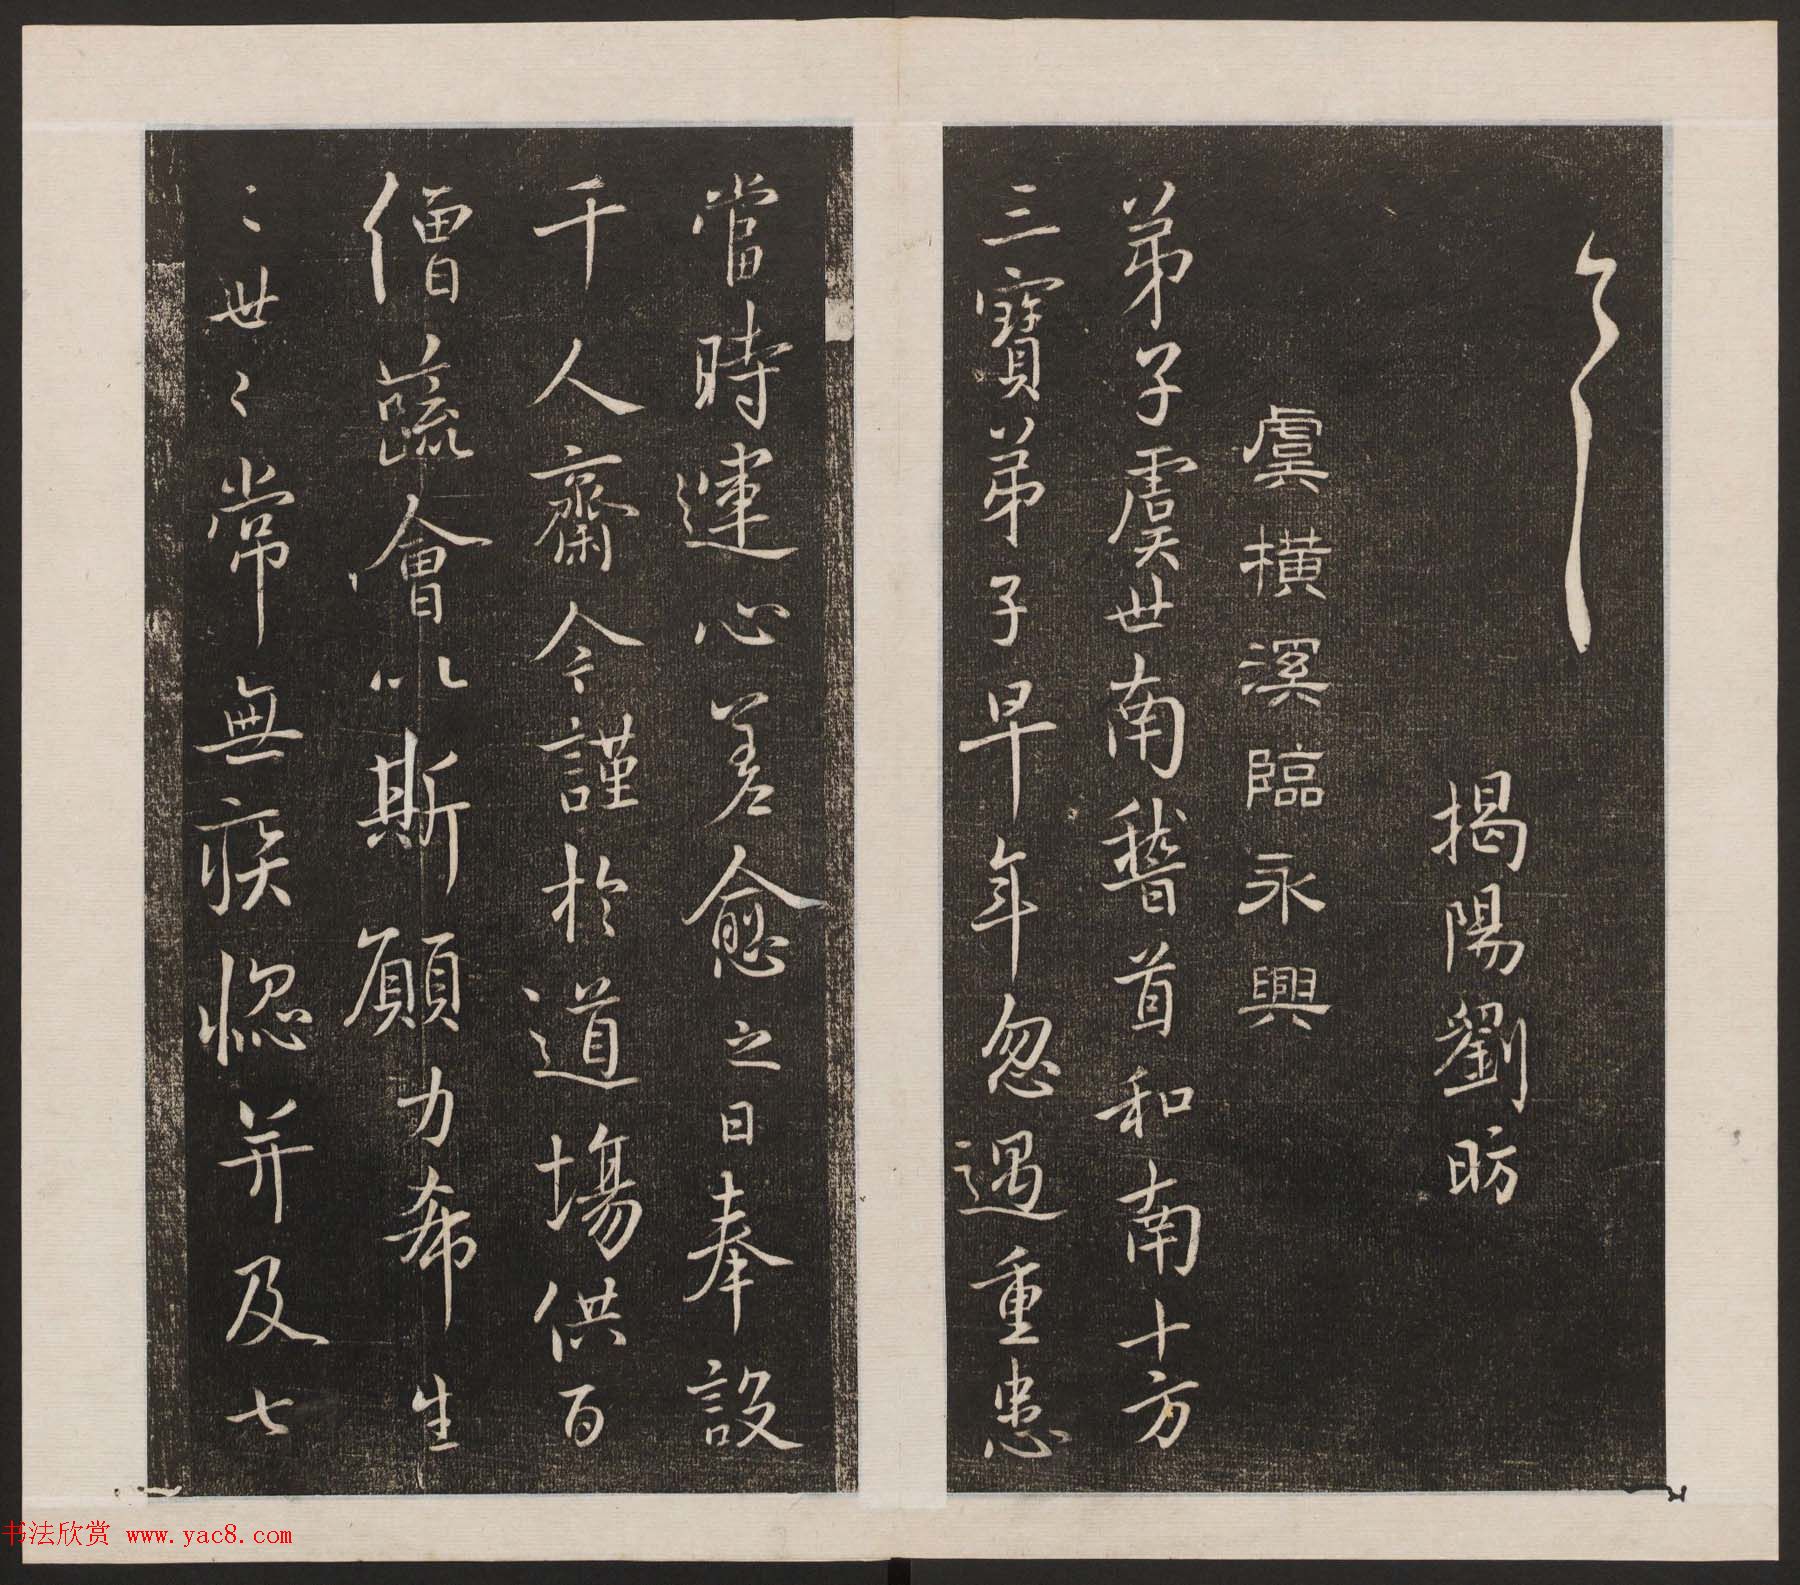 揭陽劉昉
虞橫溪臨永興
弟子虞世南稽首和南十方
三寶弟子早年忽遇重患
當時運心差愈之日奉設
千人齋今謹於道場供百
僧蔬會以斯願力希生
〻世〻常無疾惱并及七
书法欣赏 www.yac8.com